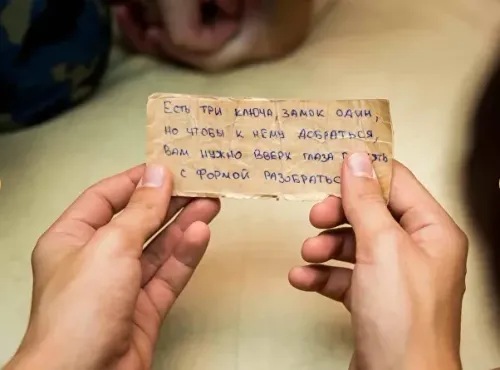 Есть три ключа, замок один,
но чтобы к нему добраться,
вам нужно вверх глаза
с формой разобраться